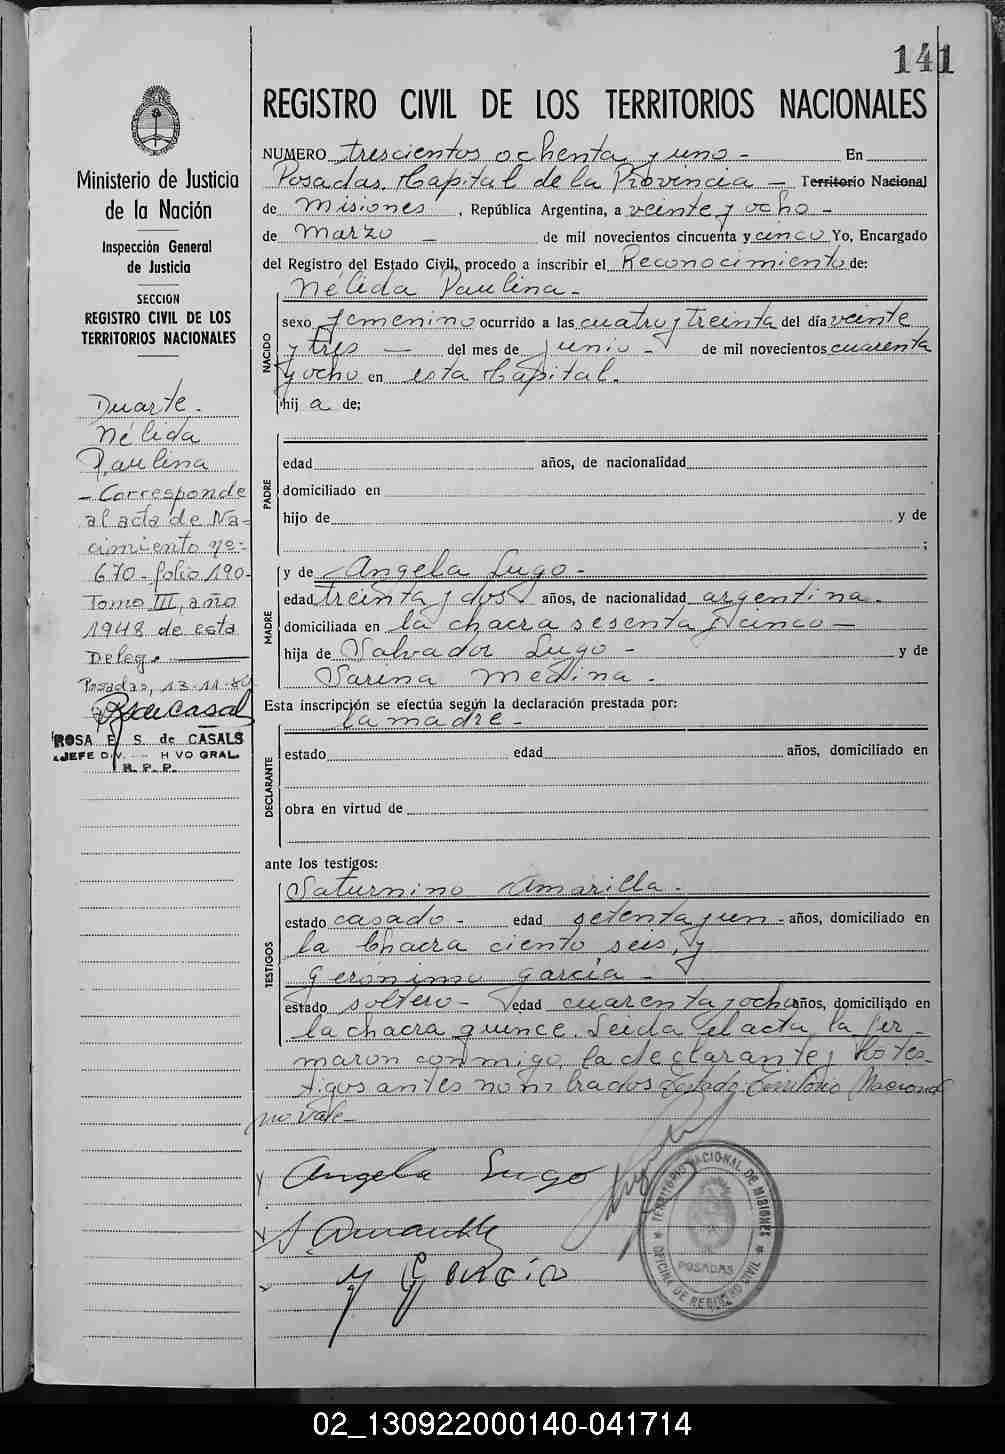 141
REGISTRO CIVIL DE LOS TERRITORIOS NACIONALES
Ministerio de Justicia
de la Nación
Inspección General
de Justicia
SECCION
REGISTRO CIVIL DE LOS
TERRITORIOS NACIONALES
Duarte.
Nélida
Paulina
- Corresponde
al acta de Na-
cimiento nº:
670 - folio 190-
Tomo III, año
1948 de esta
Deleg.
Posadas, 13-11-80
ROSA E. S. de CASALS
JEFE DIV. H VO GRAL.
R. P. P.
NUMERO trescientos ochenta y uno - En
Posadas. Capital de la Provincia - Territorio Nacional
de Misiones, República Argentina, a veinte y ocho -
de Marzo - de mil novecientos cincuenta y cinco Yo, Encargado
del Registro del Estado Civil, procedo a inscribir el Reconocimiento de:
Nélida Paulina -
NACIDO
sexo femenino ocurrido a las cuatro y treinta del día veinte
y tres - del mes de junio - de mil novecientos cuarenta
y ocho en esta Capital.
hij a de;
PADRE
edad años, de nacionalidad
domiciliado en
hijo de y de
;
MADRE
y de Angela Lugo -
edad treinta y dos años, de nacionalidad argentina.
domiciliada en la chacra sesenta y cinco -
hija de Salvador Lugo - y de
Sarina Medina.
Esta inscripción se efectúa según la declaración prestada por:
la madre -
DECLARANTE
estado edad años, domiciliado en
obra en virtud de
ante los testigos:
TESTIGOS
Saturnino Amarilla -
estado casado - edad setenta y un - años, domiciliado en
la chacra ciento seis, y
Gerónimo García -
estado soltero - edad cuarenta y ocho años, domiciliado en
la chacra quince. Leida el acta, la fir-
maron conmigo, la declarante y los tes-
tigos antes nombrados Testado: Territorio Nacional
no vale -
Angela Lugo
S. Amarilla
y García
TERRITORIO NACIONAL DE MISIONES
POSADAS
OFICINA DE REGISTRO CIVIL
02_130922000140-041714